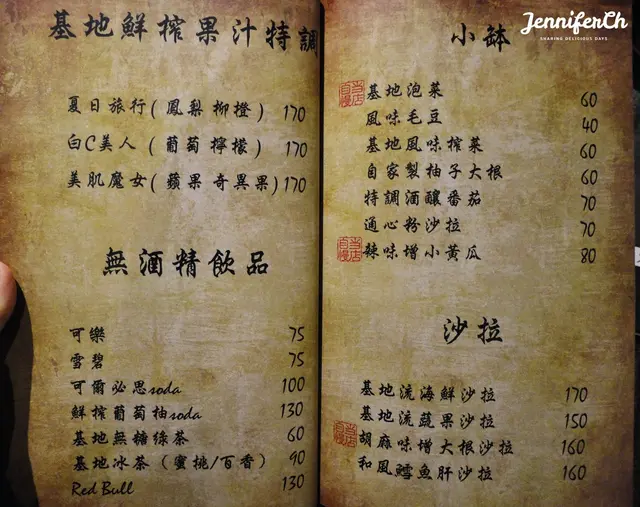 基地鮮榨果汁特調
夏日旅行(鳳梨 柳橙) 170
白C美人(葡萄 檸檬) 170
美肌魔女(蘋果 奇異果) 170
無酒精飲品
可樂 75
雪碧 75
可爾必思soda 100
鮮榨葡萄柚soda 130
基地無糖綠茶 60
基地冰茶(蜜桃/百香) 90
Red Bull 130
JenniferCh
SHARING DELICIOUS DAYS
小缽
當店自慢 基地泡菜 60
風味毛豆 40
基地風味榨菜 60
自家製柚子大根 60
特調酒釀番茄 70
通心粉沙拉 70
當店自慢 辣味增小黃瓜 80
沙拉
基地流海鮮沙拉 170
基地流蔬果沙拉 150
當店自慢 胡麻味增大根沙拉 160
和風鱈魚肝沙拉 160